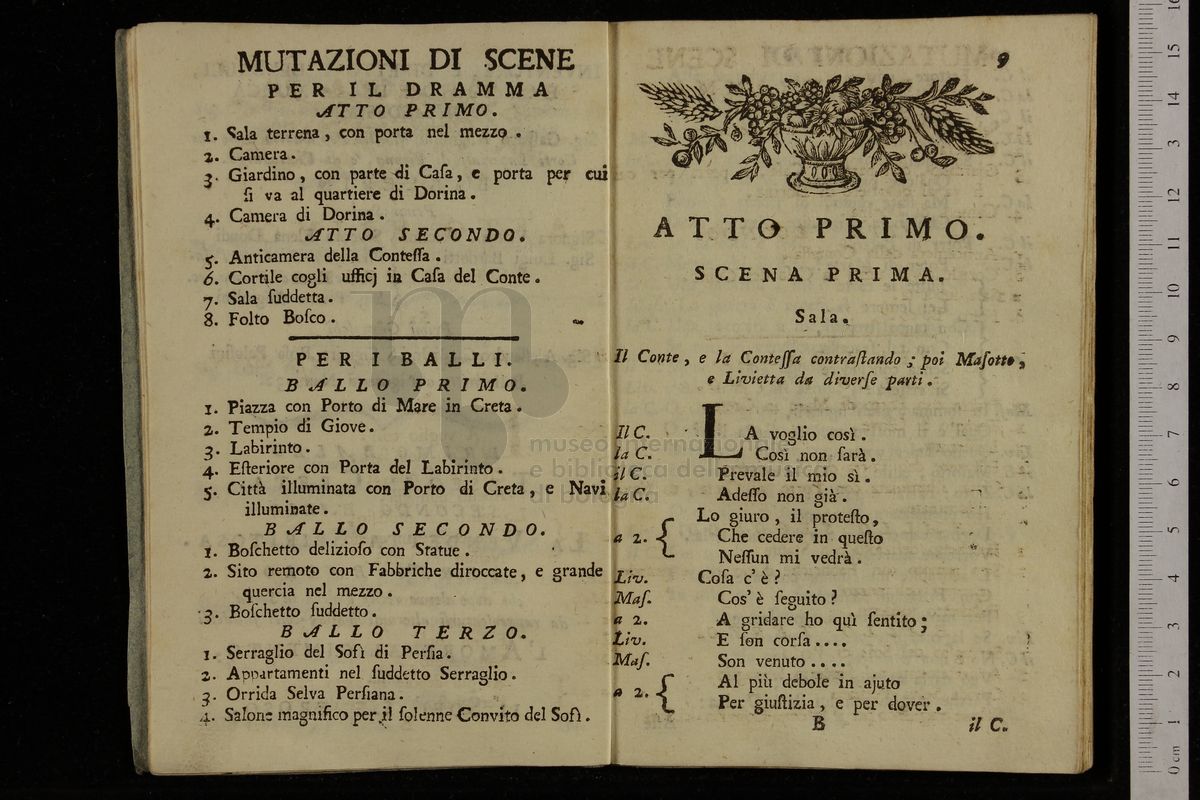 MUTAZIONI DI SCENE
PER IL DRAMMA
ATTO PRIMO.
1. Sala terrena, con porta nel mezzo.
2. Camera.
3. Giardino, con parte di Caſa, e porta per cui
ſi va al quartiere di Dorina.
4. Camera di Dorina.
ATTO SECONDO.
5. Anticamera della Conteſſa.
6. Cortile cogli ufficj in Caſa del Conte.
7. Sala ſuddetta.
8. Folto Boſco.
PER I BALLI.
BALLO PRIMO.
1. Piazza con Porto di Mare in Creta.
2. Tempio di Giove.
3. Labirinto.
4. Eſteriore con Porta del Labirinto.
5. Città illuminata con Porto di Creta, e Navi
illuminate.
BALLO SECONDO.
1. Boſchetto delizioſo con Statue.
2. Sito remoto con Fabbriche diroccate, e grande
quercia nel mezzo.
3. Boſchetto ſuddetto.
BALLO TERZO.
1. Serraglio del Sofì di Perſia.
2. Appartamenti nel ſuddetto Serraglio.
3. Orrida Selva Perſiana.
4. Salone magnifico per il ſolenne Convito del Sofì.
9
ATTO PRIMO.
SCENA PRIMA.
Sala.
Il Conte, e la Conteſſa contraſtando; poi Maſotto,
e Livietta da diverſe parti.
Il C. LA voglio così.
la C. Così non ſarà.
il C. Prevale il mio sì.
la C. Adeſſo non già.
Lo giuro, il proteſto,
a 2. { Che cedere in queſto
Neſſun mi vedrà.
Liv. Coſa c'è?
Maſ. Cos'è ſeguito?
a 2. A gridare ho quì ſentito;
Liv. E ſon corſa....
Maſ. Son venuto....
a 2. { Al più debole in ajuto
Per giuſtizia, e per dover.
B il C.
museo internazionale
e biblioteca della musica
di bologna
0 cm 1 2 3 4 5 6 7 8 9 10 11 12 13 14 15 16